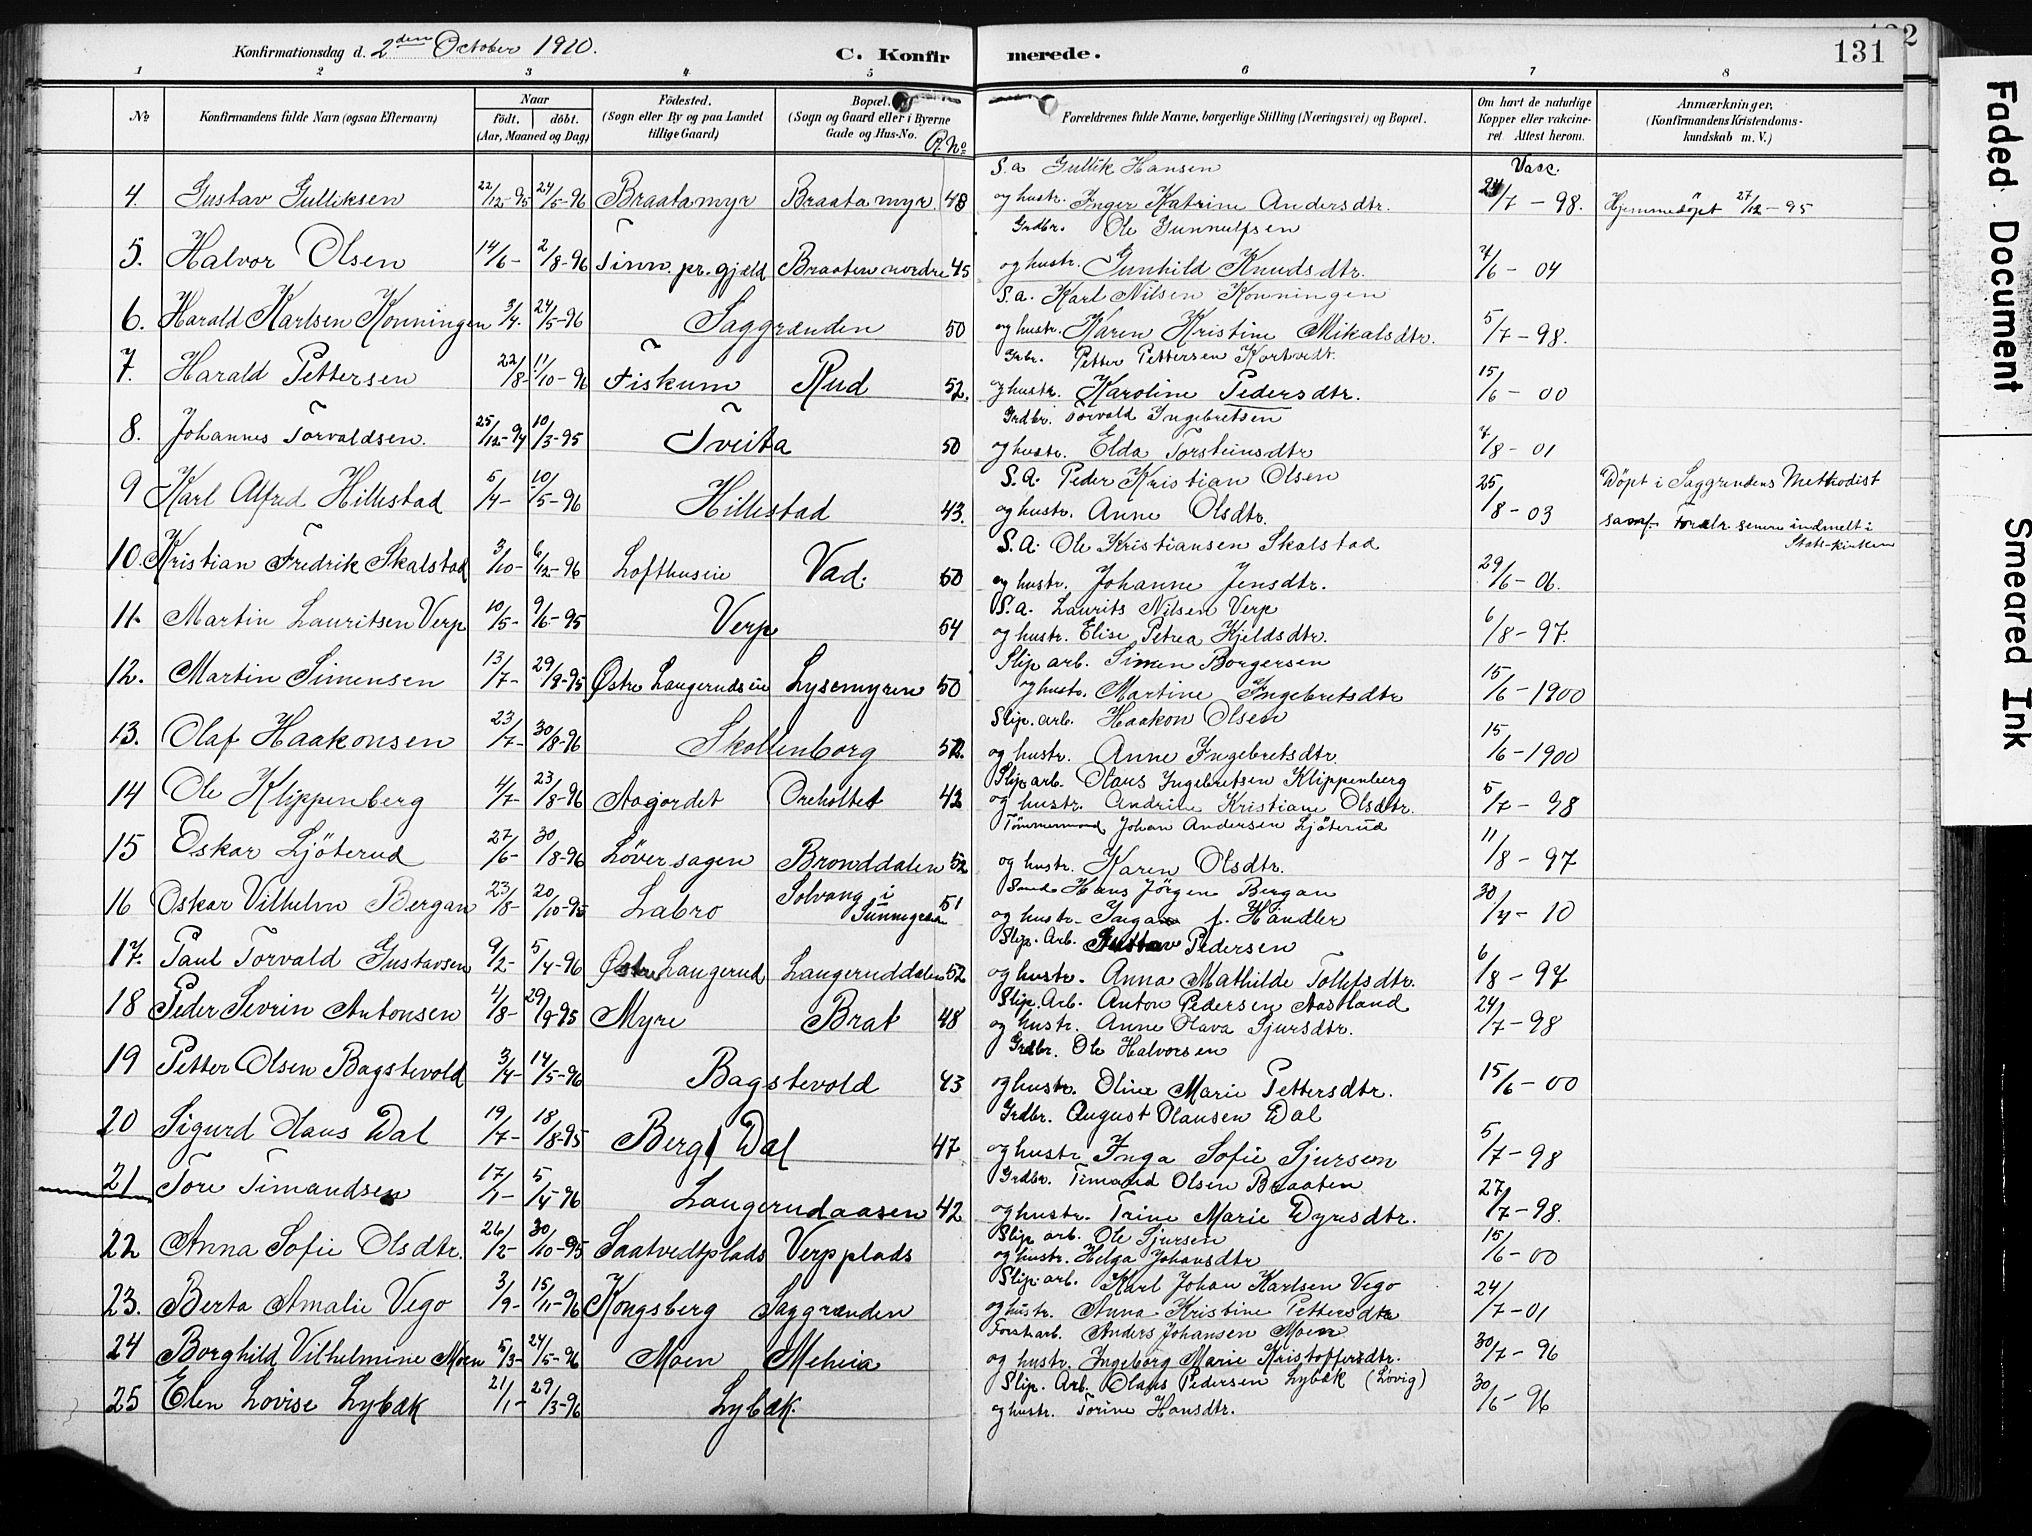 Konfirmationsdag d. 2den October 1910. C. Konfirmerede. 131
1 2 3 4 5 6 7 8
No Konfirmandens fulde Navn (ogsaa Efternavn) Naar födt. döbt. (Aar, Maaned og Dag) Födested. (Sogn eller By og paa Landet tillige Gaard) Bopæl. (Sogn og Gaard eller i Byerne Gade og Hus-No. R. No Forældrenes fulde Navne, borgerlige Stilling (Næringsvei) og Bopæl. Om havt de naturlige Kopper eller vakcineret. Attest herom. Anmærkninger. (Konfirmandens Kristendomskundskab m. V.)
Vacc.
S. a Gullik Hansen
4. Gustav Gulliksen 22/12-95 24/5-96 Braatamyr Braatamyr 48 og hustr. Inger Katrine Andersdtr. 24/7-98. Hjemmedöpt 27/12-95
Grdbr. Ole Gunnulfsen
5. Halvor Olsen 14/6- 2/8-96 Tinn pr.gjeld Braaten nordre 45 og hustr. Gunhild Knudsdtr. 7/6-04
S.a. Karl Nilsen Konningen
6. Harald Karlsen Konningen 3/4. 24/5-96 Saggrænden 50 og hustr. Karen Kristine Mikalsdtr. 5/7-98.
Grbr. Petter Pettersen Kortvedt.
7. Harald Pettersen 22/8- 11/10-96 Fiskum Rud 52. og hustr. Karoline Pedersdtr. 15/6-00
Grdbr. Torvald Ingebretsen
8. Johannes Torvaldsen. 25/12-94 10/3-95 Tveita 50 og hustr. Elda Torsteinsdtr 7/8-01
S.a. Peder Kristian Olsen
9 Karl Alfred Hillestad 5/4- 10/5-96 Hillestad 43. og hustr. Anne Olsdtr. 25/8-03 Döpt i Saggrendens Methodist
samf. Forældr. senere indmelt i
Stats-kirken
S.a. Ole Kristiansen Skalstad
10. Kristian Fredrik Skalstad 3/10- 6/12-96 Lofthuseie Vad. 50 og hustr. Johanne Jensdtr. 29/6-06.
S.a. Laurits Nilsen Verp
11. Martin Lauritsen Verp 10/5- 9/6-95 Verp 54 og hustr. Elise Petrea Kjeldsdtr. 6/8-97.
Slip arb. Simen Borgersen
12. Martin Simensen 13/7- 29/9-95 Østre Langerudseie Lysemyren 50 og hustr. Martine Ingebretsdtr 15/6-1900
Slip. arb. Haakon Olsen
13. Olaf Haakonsen 23/7- 30/8-96 Skollenborg 52. og hustr. Anne Ingebretsdtr. 15/6-1900
Slip. arb. Olaus Ingebretsen Klippenberg
14 Ole Klippenberg 4/7- 23/8-96 Aagordet Oreholtet 42 og hustr. Andrine Kristiane Olsdtr. 5/7-98
Tömmermand Johan Andersen Ljöterud
15 Oskar Ljöterud 27/6- 30/8-96 Løver sagen Bronddalen 52 og hustr. Karen Olsdtr. 11/8-97
Hans Jörgen Bergan
16 Oskar Vilhelm Bergan 23/8- 20/10-95 Labro Solvang i 51 og hustr. Inga f. Händler 30/4-10
Slip. Arb. Gustav Pedersen
17. Paul Torvald Gustavsen 9/2- 5/4-96 Østre Langerud Langeruddalen 52 og hustr. Anna Mathilde Tollefsdtr. 6/8-97
Slip. Arb. Anton Pedersen Aasland
18 Peder Sevrin Antonsen 4/8- 29/9-95 Myre Brat 48 og hustr. Anne Olava Sjursdtr. 24/7-98
Grdbr. Ole Halvorsen
19 Petter Olsen Bagstevold 3/4- 14/5-96 Bagstevold 43 og hustr. Oline Marie Pettersdtr. 15/6-00
Grdbr. August Olausen Dal
20 Sigurd Olaus Dal 19/7- 18/8-95 Berg Dal 47 og hustr Inga Sofie Sjursen 5/7-98
Grdbr. Timand Olsen Braaten
21 Tore Timandsen 17/1- 5/4-96 Langerudaasen 42 og hustr. Trine Marie Dyresdtr. 27/7-98.
Slip arb. Ole Sjursen
22 Anna Sofie Olsdtr. 26/2- 30/10-95 Saatvedtplads Verpplads og hustr. Helga Johansdtr 15/6-00
Slip. arb. Karl Johan Karlsen Vego
23. Berta Amalie Vego 3/9- 15/11-96 Kongsberg Saggrænden og hustr. Anna Kristine Pettersdtr 24/7-01
Forstarb. Anders Johansen Moen
24 Borghild Vilhelmine Moen 5/3- 24/5-96 Moen Meheia og hustr. Ingeborg Marie Kristoffersdtr. 30/7-96
Slip. Arb. Olaus Pedersen Lybæk (Løvig)
25 Elen Lovise Lybæk 21/1- 29/3-96 Lybæk. og hustr. Torine Hansdtr. 30/6-96
Faded Document
Smeared Ink